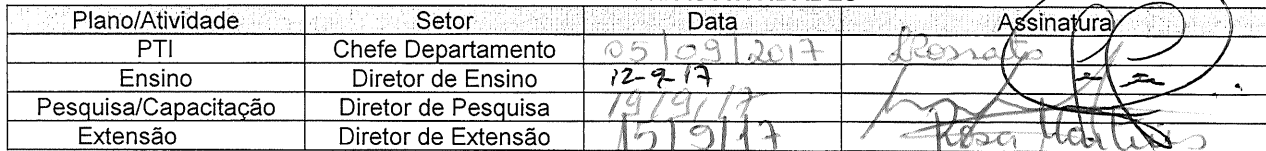 Plano/Atividade Setor Data Assinatura
PTI Chefe Departamento 05/09/2017
Ensino Diretor de Ensino 12-9-17
Pesquisa/Capacitação Diretor de Pesquisa 19/9/17
Extensão Diretor de Extensão 15/9/17 Rosa Martins